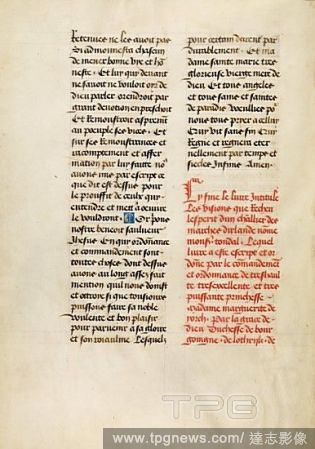 Retenues ne les auoit pas
Si admonnesta chascun
de mener bonne vie et ho
neste. Et luy qui deuant
ne sauoit ne vouloit oir de
dieu parler orendroit par
grant deuotion en preschoit
Et remonstroit asprement
au peuple ses vices. Et
sur ses remonstrances et
racomptement et affer
mation par luy faitte nous
auons mis par escript ce
que dit est dessus pour
le prouffit de ceulx qui
entendre et mettre a oeuure
le vouldront. Or prions
nostre benoit sauueur
Ihesus Cry qui ordonnance
et commandement sont
toutes choses dont dessus
auons au long assez fait
mention quil nous doinst
et ottroie si que tousiours
puissons faire sa noble
voulente et bon plaisir
pour paruenir a sa gloire
et son roiaulme Lesquelz
pour certain durent par
durablement. Et ma
dame sainte marie tres
glorieuse vierge mere de
dieu Et tous angeles
et tous sains et saintes
de paradis Vueillies po
nous tous prier a cellui
Qui vit sans fin Qui
Regne et regnera eter
nellement par temps et
siecles Infinis Amen.
Cy fine le liure Intitule
Les visions que recheu
lesperit dun chlr des
marches dirlande nomme
monsr. tondal. Lequel
liure a este escript et or
donne par le commandement
et ordonnance de treshaulte
tresexcellente et tres
puissante princhesse
Madame marguerite de
yorch. Par la grace de
dieu Duchesse de bour
goingne. de lothrijk. de
TPG
www.tpgnews.com/達志影像